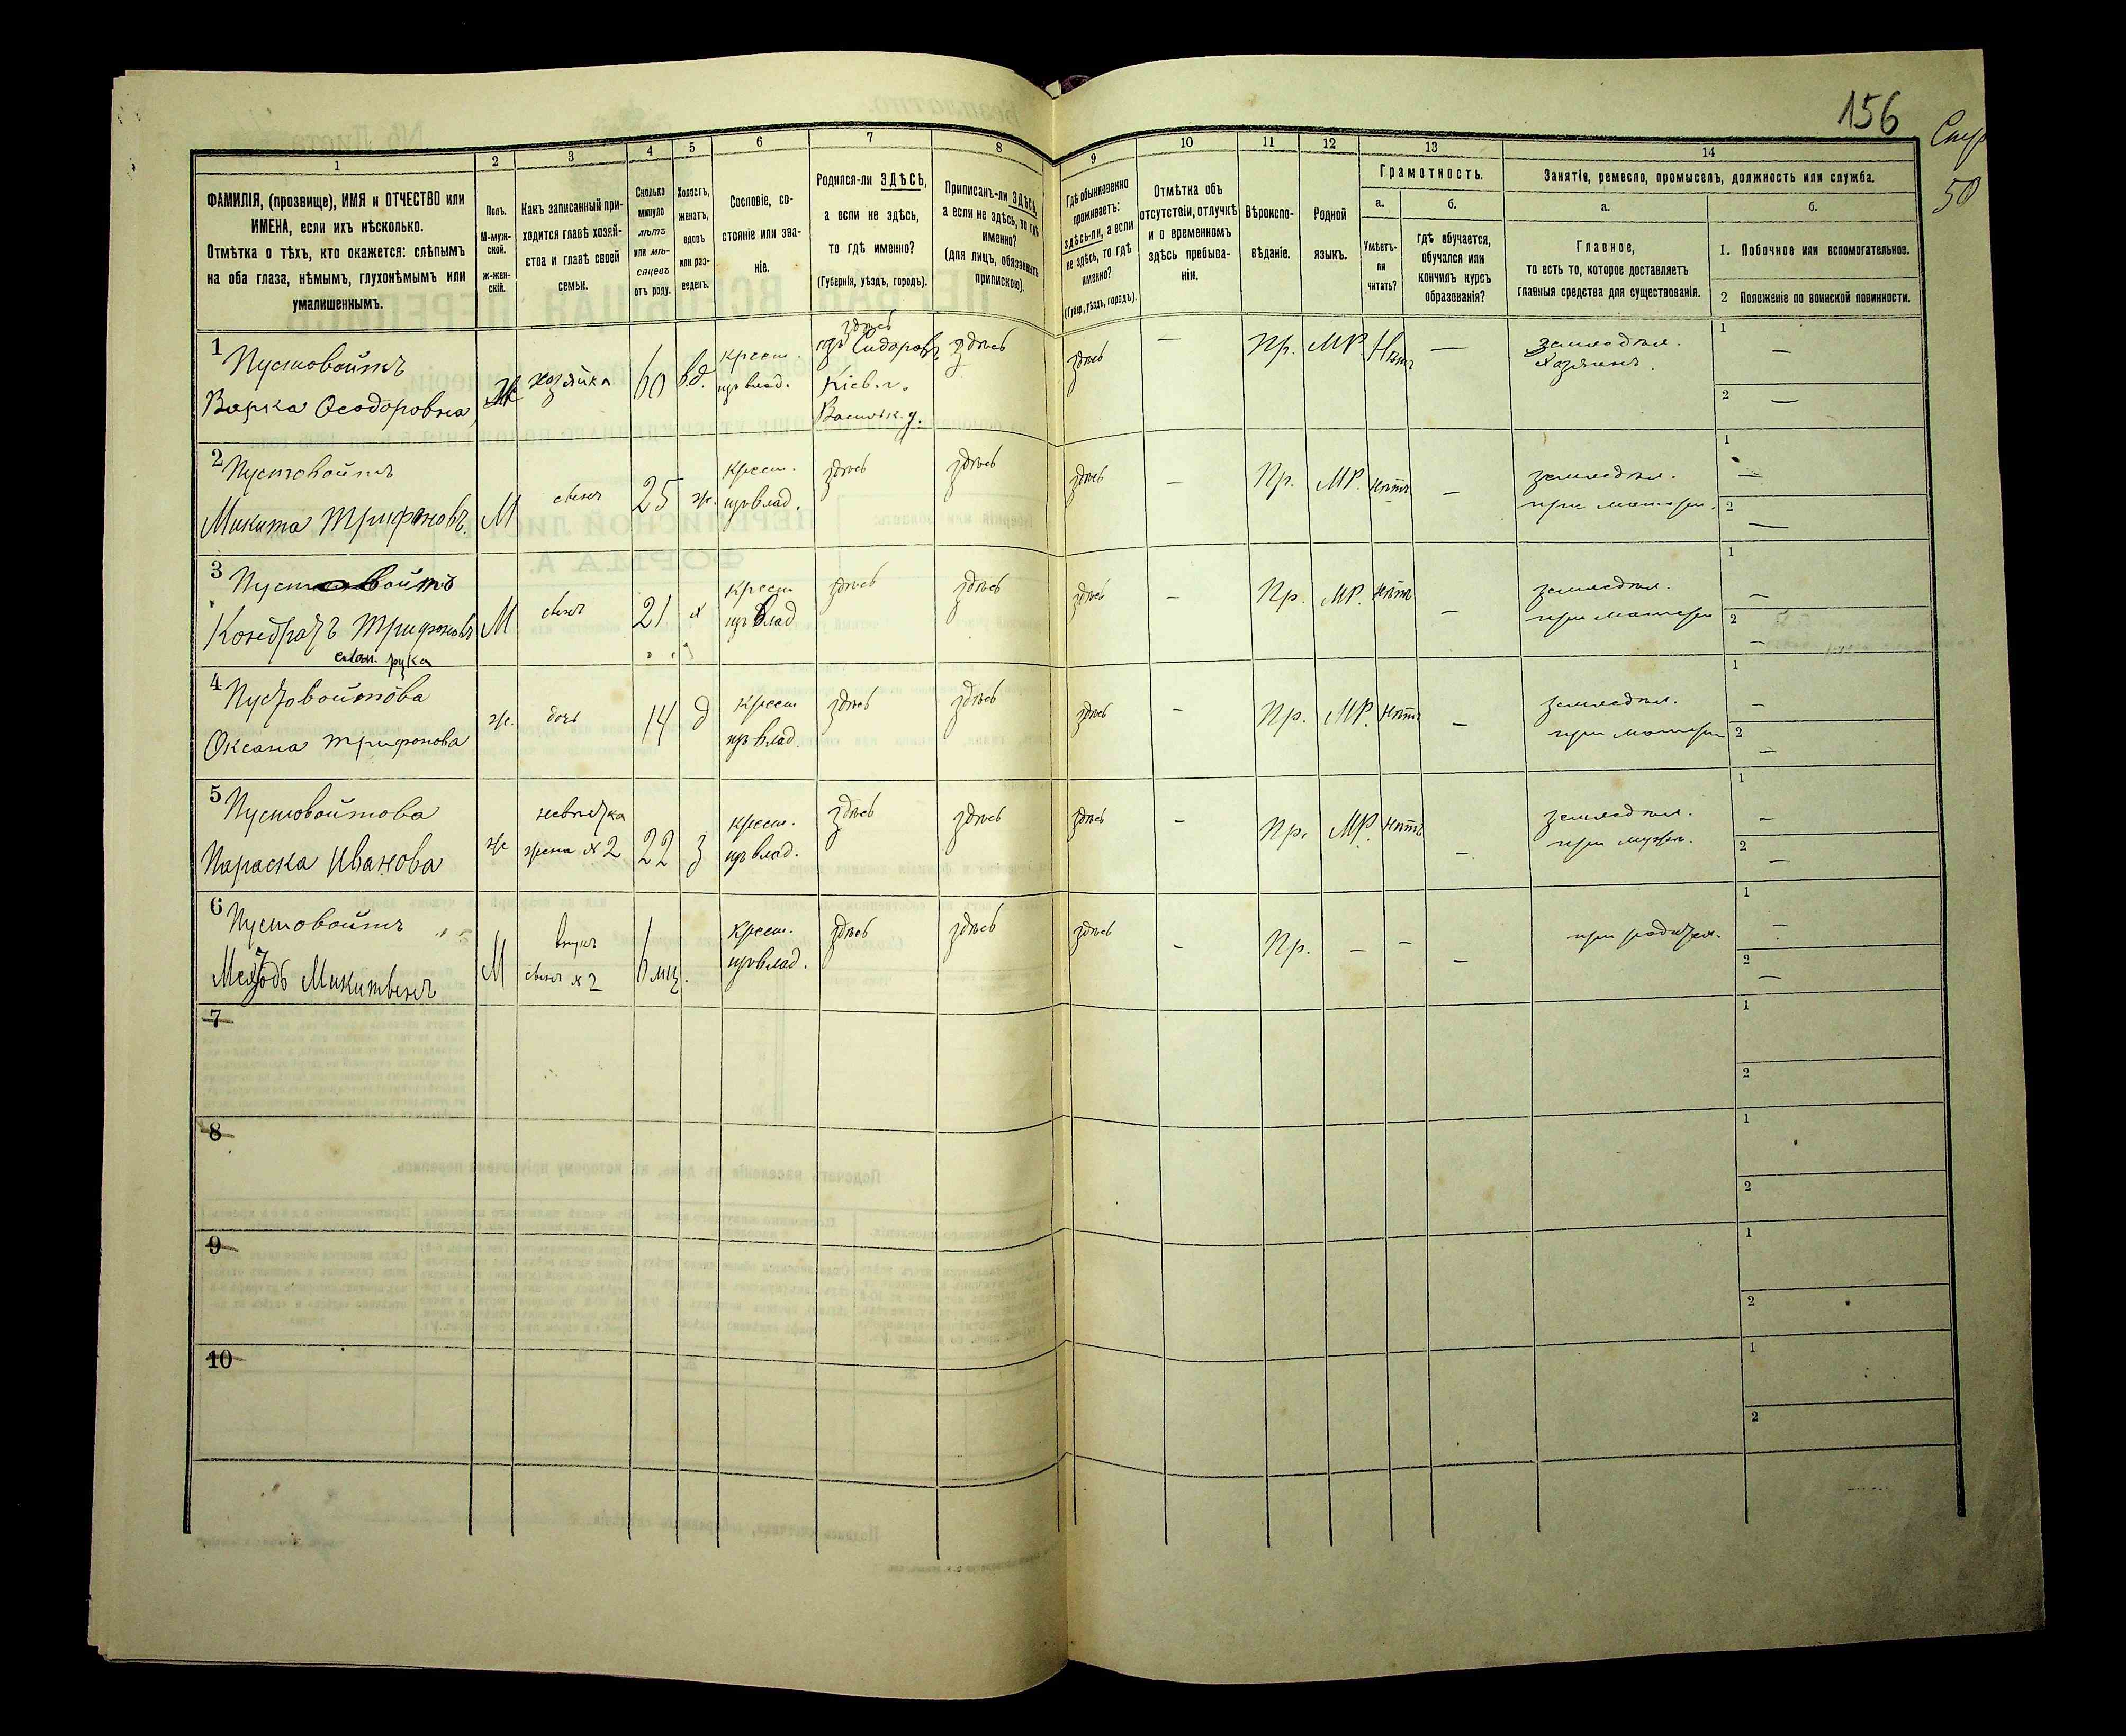 156
Стр
50
1
2
3
4
5
6
7
8
9
10
11
12
13
14
ФАМИЛІЯ, (прозвище), ИМЯ и ОТЧЕСТВО или
ИМЕНА, если ихъ нѣсколько.
Отмѣтка о тѣхъ, кто окажется: слѣпымъ
на оба глаза, нѣмымъ, глухонѣмымъ или
умалишеннымъ.
Полъ.
М-муж-
ской.
ж-жен-
скій.
Какъ записанный при-
ходится главѣ хозяй-
ства и главѣ своей
семьи.
Сколько
минуло
лѣтъ
или мѣ-
сяцевъ
отъ роду.
Холостъ,
женатъ,
вдовъ
или раз-
веденъ.
Сословіе, со-
стояніе или зва-
ніе.
Родился-ли ЗДѢСЬ,
а если не здѣсь,
то гдѣ именно?
(Губернія, уѣздъ, городъ).
Приписанъ-ли ЗДѢСЬ,
а если не здѣсь, то гдѣ
именно?
(для лицъ, обязанныхъ
припискою).
Гдѣ обыкновенно
проживаетъ:
здѣсь-ли, а если
не здѣсь, то гдѣ
именно?
(Губер., уѣздъ, городъ).
Отмѣтка объ
отсутствіи, отлучкѣ
и о временномъ
здѣсь пребыва-
ніи.
Вѣроиспо-
вѣданіе.
Родной
языкъ.
Грамотность.
а.
Умѣетъ-
ли
читать?
б.
гдѣ обучается,
обучался или
кончилъ курсъ
образованія?
Занятіе, ремесло, промыселъ, должность или служба.
а.
Главное,
то есть то, которое доставляетъ
главныя средства для существованія.
б.
1. Побочное или вспомогательное.
2 Положеніе по воинской повинности.
1 Пустовойтъ
Варка Ѳеодоровна
Ж
хозяйка
60
вд.
крест.
из влад.
здѣсь
Сидоровъ
Кіев. г.
Васильк. у.
здѣсь
здѣсь
—
Пр.
МР
Нѣтъ
—
земледѣл.
Хозяинъ.
1 —
2 —
2 Пустовойтъ
Микита Трифоновъ.
М
сынъ
25
ж.
крест.
из влад.
здѣсь
здѣсь
здѣсь
—
Пр.
МР.
нѣтъ
—
земледѣл.
при матери.
1 —
2 —
3 Пустовойтъ
Кондратъ Трифоновъ
М
сынъ
21
х
крест
из влад
здѣсь
здѣсь
здѣсь
—
Пр.
МР.
нѣтъ
—
земледѣл.
при матери
1 —
2 —
рука
4 Пустовойтова
Оксана Трифонова
ж.
дочь
14
д
крест
из влад.
здѣсь
здѣсь
здѣсь
—
Пр.
МР.
нѣтъ
—
земледѣл.
при матери
1 —
2 —
5 Пустовойтова
Параска Иванова
ж
невѣстка
жена №2
22
з
крест.
из влад.
здѣсь
здѣсь
здѣсь
—
Пр.
МР.
нѣтъ
—
земледѣл.
при мужѣ.
1 —
2 —
6 Пустовойтъ
Микитынъ
М
внукъ
сынъ №2
6 мц.
крест.
из влад.
здѣсь
здѣсь
здѣсь
—
Пр.
—
—
—
при родител.
1 —
2 —
7
1
2
8
1
2
9
1
2
10
1
2